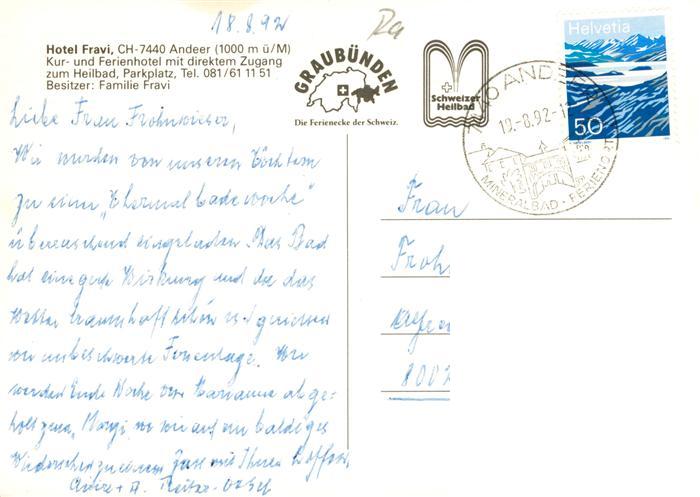 18.8.92
Ra
Hotel Fravi, CH-7440 Andeer (1000 m ü/M)
Kur- und Ferienhotel mit direktem Zugang
zum Heilbad, Parkplatz, Tel. 081/61 11 51
Besitzer: Familie Fravi
GRAUBÜNDEN
Die Ferienecke der Schweiz.
Schweizer
Heilbad
Helvetia
50
7440 ANDEER
19.-8.92-1
MINERALBAD - FERIENORT
Liebe Frau Frohnwieser,
Wir wurden von unseren Töchtern
zu einer „Thermalbadewoche"
überraschend eingeladen. Das Bad
hat eine gute Wirkung und da das
Wetter traumhaft schön ist geniessen
wir unbeschwerte Ferientage. Wir
werden Ende Woche von Marianne abge-
holt wo wir auf ein baldiges
Wiedersehen mit Ihnen hoffen.
Frau
Froh
8002